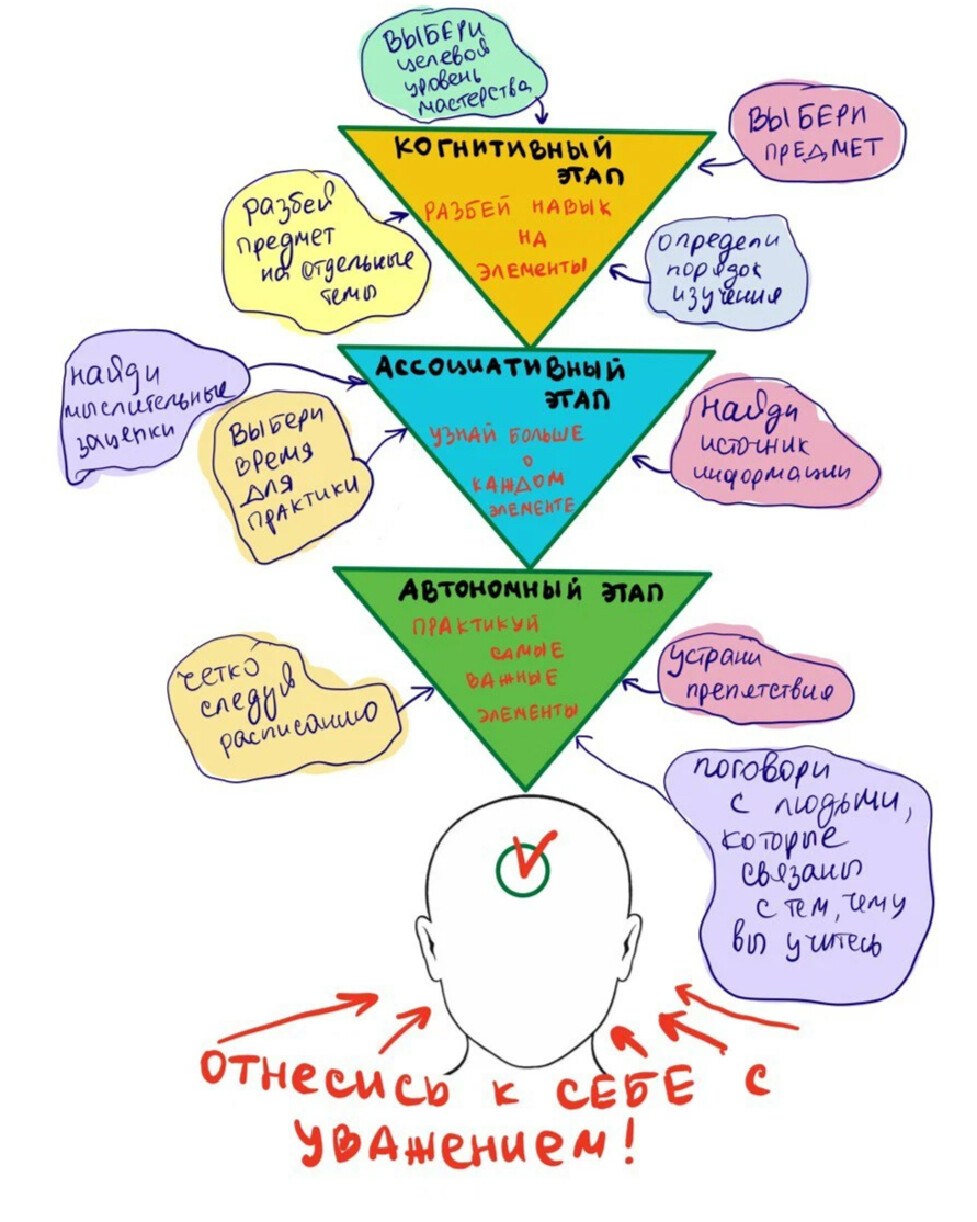 ВЫБЕРИ
целевой
уровень
мастерства
ВЫБЕРИ
ПРЕДМЕТ
КОГНИТИВНЫЙ
ЭТАП
РАЗБЕЙ НАВЫК
НА
ЭЛЕМЕНТЫ
разбей
предмет
на отдельные
темы
определи
порядок
изучения
АССОЦИАТИВНЫЙ
ЭТАП
УЗНАЙ БОЛЬШЕ
О
КАЖДОМ
ЭЛЕМЕНТЕ
найди
мыслительные
зацепки
ВЫБЕРИ
ВРЕМЯ
ДЛЯ
ПРАКТИКИ
найди
источник
информации
АВТОНОМНЫЙ ЭТАП
ПРАКТИКУЙ
САМЫЕ
ВАЖНЫЕ
ЭЛЕМЕНТЫ
четко
следуй
расписанию
устрани
препятствия
поговори
с людьми,
которые
связаны
с тем, чему
вы учитесь
ОТНЕСИСЬ К СЕБЕ С
УВАЖЕНИЕМ!